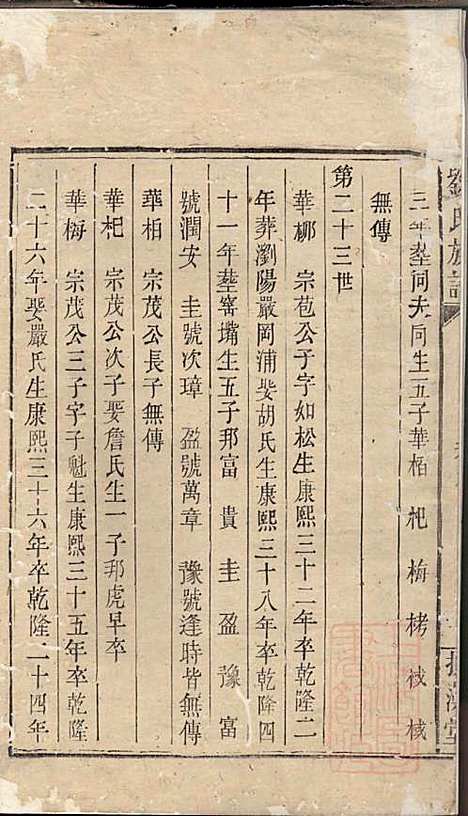 劉氏族譜
三年塟同夫向生五子華栢 杞 梅 栲 棫 棫
無傳
第二十三世
華栁 宗苞公子字如松生康熙三十二年卒乾隆二
年葬瀏陽嚴岡浦娶胡氏生康熙三十八年卒乾隆四
十一年塟窰嘴生五子邦富 貴 圭 盈 豫 富
號潤安 圭號次璋 盈號萬章 豫號逢時皆無傳
華栢 宗茂公長子無傳
華杞 宗茂公次子娶詹氏生一子邦虎早卒
華梅 宗茂公三子字子魁生康熙三十五年卒乾隆
二十六年娶嚴氏生康熙三十六年卒乾隆二十四年